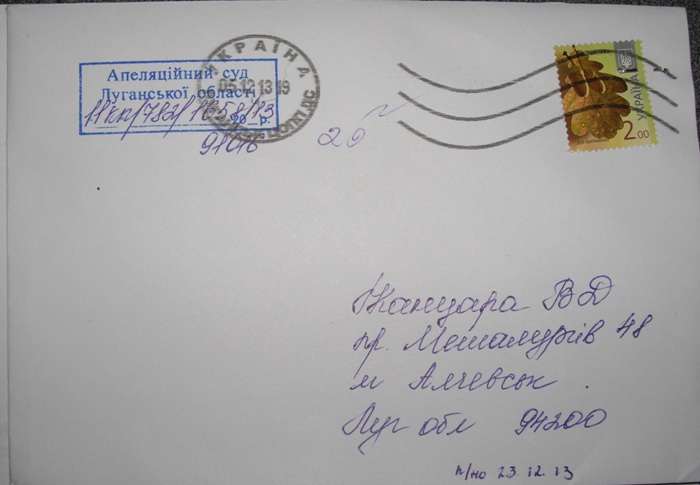 Апеляційний суд
Луганської області
11кп/782/1058/13
20_р.
91016
УКРАЇНА
05 12 13 19
20
УКРАЇНА
2.00
ВД
пр. Металургів 48
м Алчевськ
Луг обл 94200
п/но 23.12.13